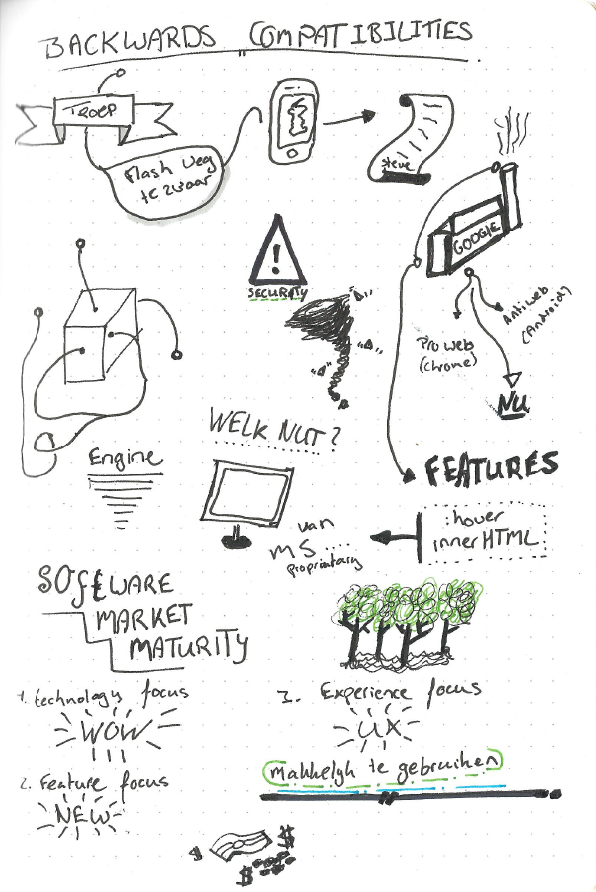 BACKWARDS COMPATIBILITIES
TROEP
Flash weg
te zwaar
steve
GOOGLE
SECURITY
Pro web
(chrome)
Anti web
(Android?)
NU
WELK NUT?
Engine
FEATURES
:hover
innerHTML
van
MS
proprietary
SOftWARE
MARKET
MATURITY
1. technology focus
WOW
2. Feature focus
NEW
3. Experience focus
UX
makkelijk te gebruiken
$
$